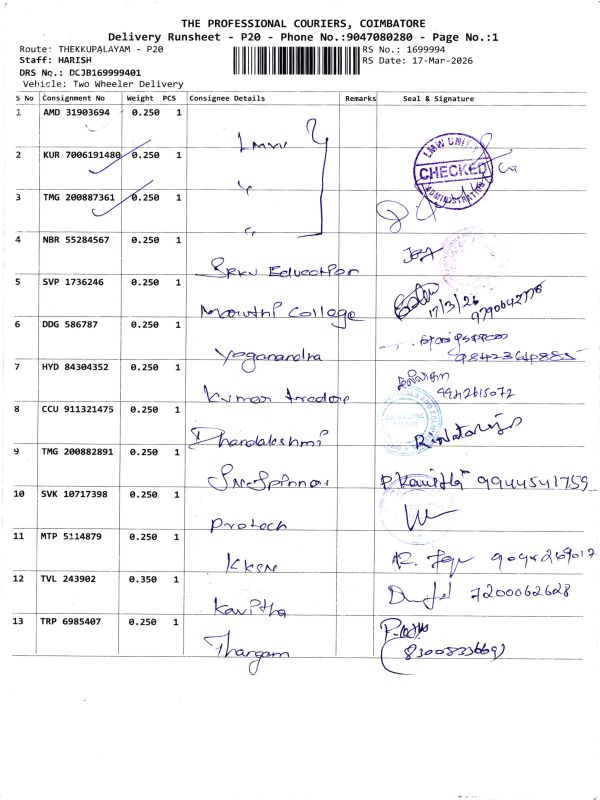 THE PROFESSIONAL COURIERS, COIMBATORE
Delivery Runsheet - P20 - Phone No.:9047080280 - Page No.:1
Route: THEKKUPALAYAM - P20
RS No.: 1699994
Staff: HARISH
RS Date: 17-Mar-2026
DRS No.: DCJB169999401
Vehicle: Two Wheeler Delivery
S No Consignment No Weight PCS Consignee Details Remarks Seal & Signature
1 AMD 31903694 0.250 1 LMW
2 KUR 7006191480 0.250 1 "
LMW UNIT CHECKED ADMINISTRATION
3 TMG 200887361 0.250 1 "
4 NBR 55284567 0.250 1 SRKV Education
5 SVP 1736246 0.250 1 Maruthi College 17/3/26 9790642778
6 DDG 586787 0.250 1 Yoganandra 9842364885
7 HYD 84304352 0.250 1 Kumar traders 9942615072
8 CCU 911321475 0.250 1 Dhandalakshmi R. Nataraj
9 TMG 200882891 0.250 1 Sne Spinners P. Kavitha 9944541759
10 SVK 10717398 0.250 1 Protech
11 MTP 5114879 0.250 1
12 TVL 243902 0.350 1 Kavitha 7200062628
13 TRP 6985407 0.250 1 Thangam